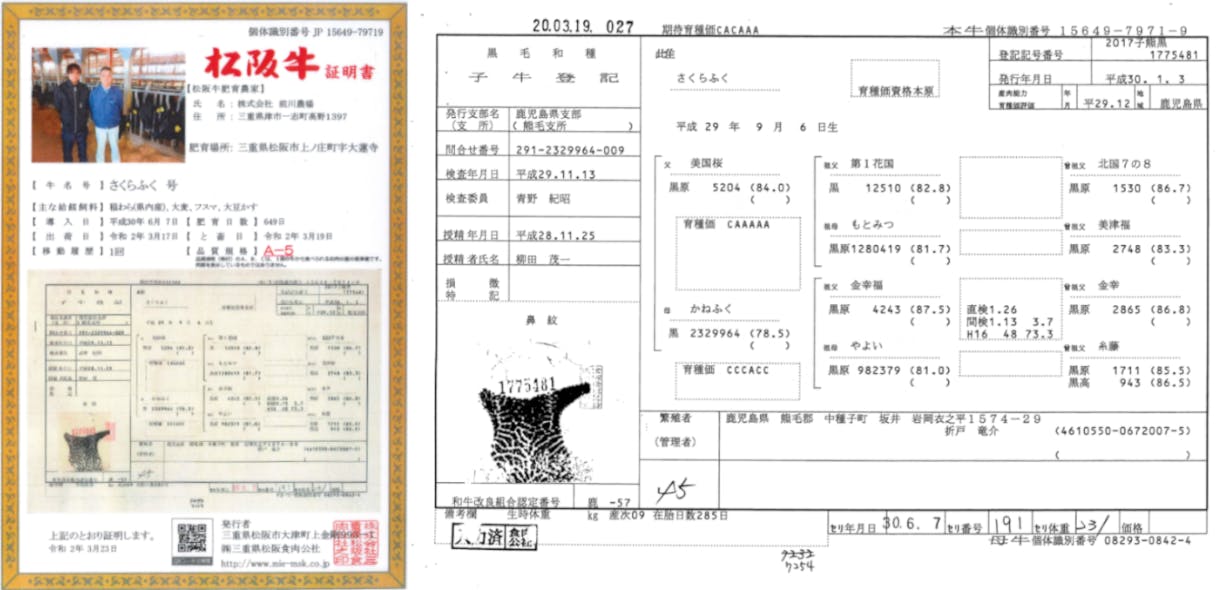 個体識別番号 JP 15649-79719
松阪牛 証明書
【松阪牛肥育農家】
氏 名 : 株式会社 前川農場
住 所 : 三重県津市一志町高野1397
肥育場所: 三重県松阪市上ノ庄町字大蓮寺
【牛名号】さくらふく 号
【主な給餌飼料】稲わら(県内産)、大麦、フスマ、大豆かす
【導入日】平成30年 6月 7日【肥育日数】649日
【出荷日】令和 2年 3月17日【と畜日】令和 2年 3月19日
【移動履歴】1回 【品質規格】A-5
上記のとおり証明します。
令和 2年 3月23日
発行者
三重県松阪市大津町上金剛993-1
㈱三重県松阪食肉公社
http://www.mie-msk.co.jp
20.03.19. 027 期待育種価CACAAA 本牛個体識別番号 15649-7971-9
黒毛和種
子牛登記
さくらふく
育種価資格本原
登記記号番号 2017子熊黒 1775481
発行年月日 平成30. 1. 3
産肉能力育種価評価 年月 平29.12 地域 鹿児島県
平成 29 年 9 月 6 日生
発行支部名(支所) 鹿児島県支部 (熊毛支所)
問合せ番号 291-2329964-009
検査年月日 平成29.11.13
検査委員 青野 紀昭
授精年月日 平成28.11.25
授精者氏名 柳田 茂一
損徴
特記
鼻紋
1775481
父 美国桜
黒原 5204 (84.0)
( )
育種価 CAAAAA
母 かねふく
黒 2329964 (78.5)
( )
育種価 CCCACC
祖父 第1花国
黒 12510 (82.8)
( )
祖母 もとみつ
黒原1280419 (81.7)
( )
祖父 金幸福
黒原 4243 (87.5)
( )
祖母 やよい
黒原 982379 (81.0)
( )
直検1.26
間検1.13 3.7
H16 48 73.3
曾祖父 北国7の8
黒原 1530 (86.7)
( )
曾祖父 美津福
黒原 2748 (83.3)
( )
曾祖父 金幸
黒原 2865 (86.8)
( )
曾祖父 糸藤
黒原 1711 (85.5)
黒高 943 (86.5)
繁殖者
(管理者)
鹿児島県 熊毛郡 中種子町 坂井 岩岡衣之平1574-29
折戸 竜介 (4610550-0672007-5)
( )
A5
和牛改良組合認定番号 鹿 -57
備考欄 生時体重 kg 産次09 在胎日数285日
セリ年月日 30.6.7 セリ番号 191 セリ体重 231 価格
母牛個体識別番号 08293-0842-4
7254